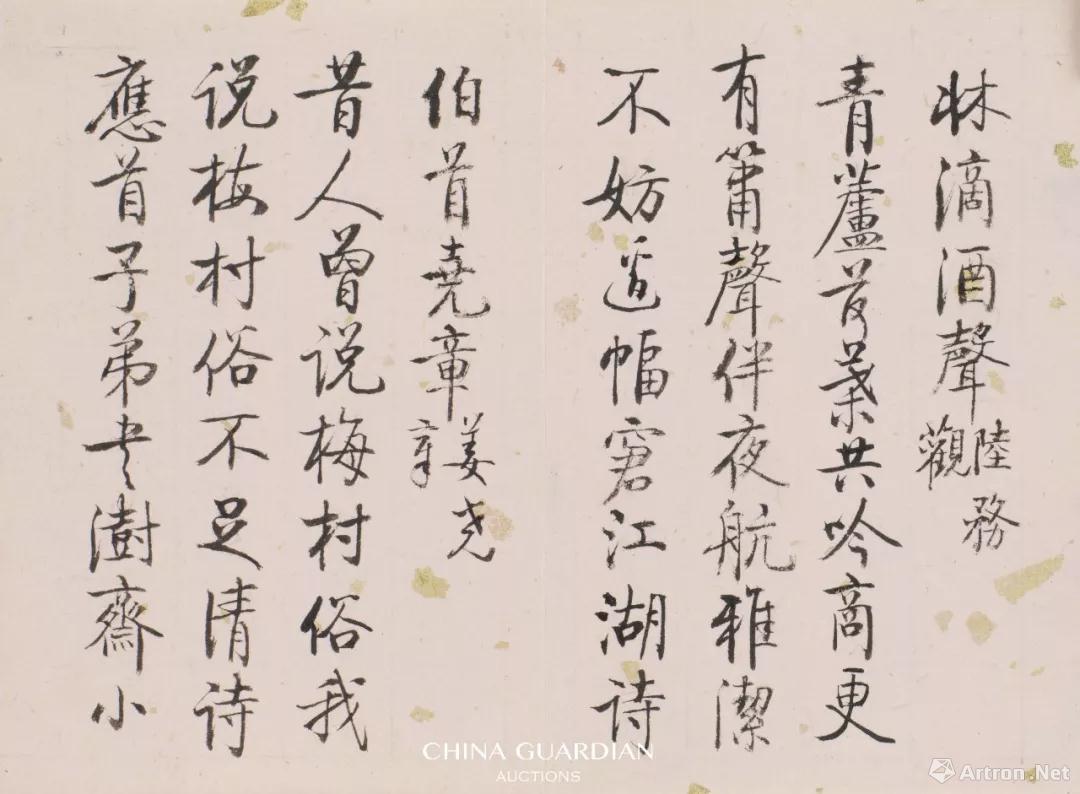 牀滴酒聲 陸務觀
青蘆葉共吟商更
有簫聲伴夜航雅潔
不妨邊幅窘江湖诗
伯首堯章 姜尧章
昔人曾说梅村俗我
说梅村俗不足清诗
應首子弟澍齋小
CHINA GUARDIAN
AUCTIONS
Artron.Net